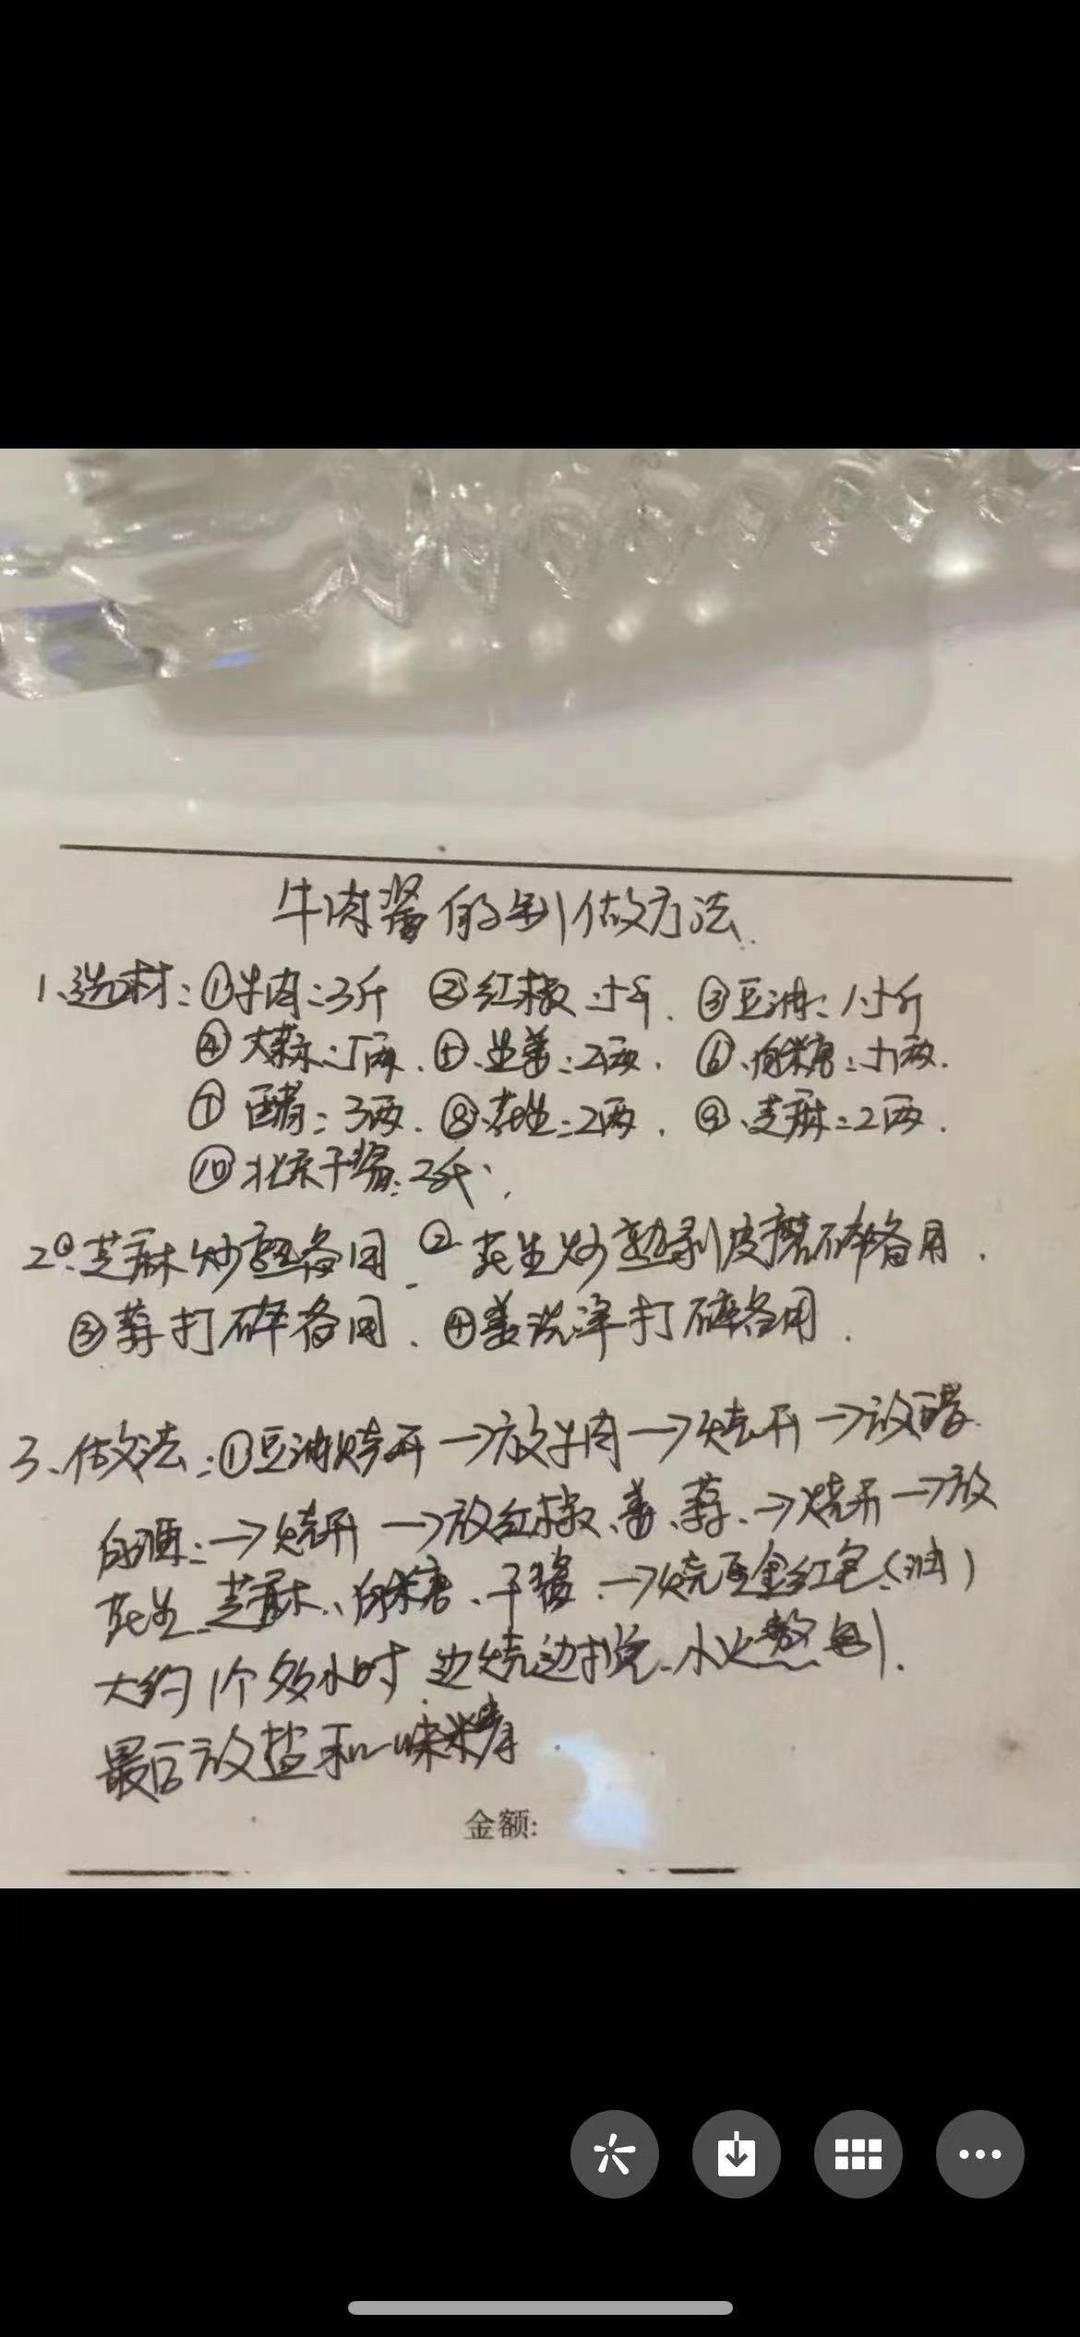 牛肉酱的制做方法.
1、选材：①牛肉：3斤 ②红椒：5斤. ③豆油：1.5斤
④大蒜：5两. ⑤生姜：2两. ⑥白糖：5两.
⑦醋：3两. ⑧花生：2两. ⑨芝麻：2两.
⑩北京干酱：2斤.
2、①芝麻炒熟备用. ②花生炒熟剥皮磨碎备用.
③蒜打碎备用. ④姜洗净打碎备用.
3、做法：①豆油烧开→放牛肉→烧开→放醋.
白酒：→烧开→放红椒、姜、蒜.→烧开→放
花生、芝麻、白糖、干酱.→烧至金红色(油)
大约1个多小时 边烧边搅.小火熬制.
最后放盐和味精
金额: